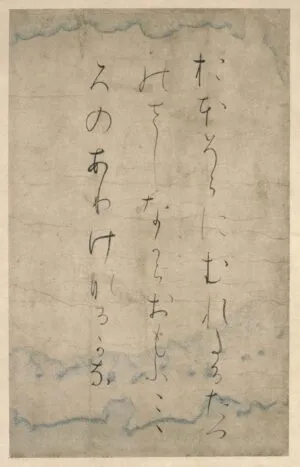 おほそらにむれたるたつ
のさしなからおもふこゝ
ろのありけなるかな